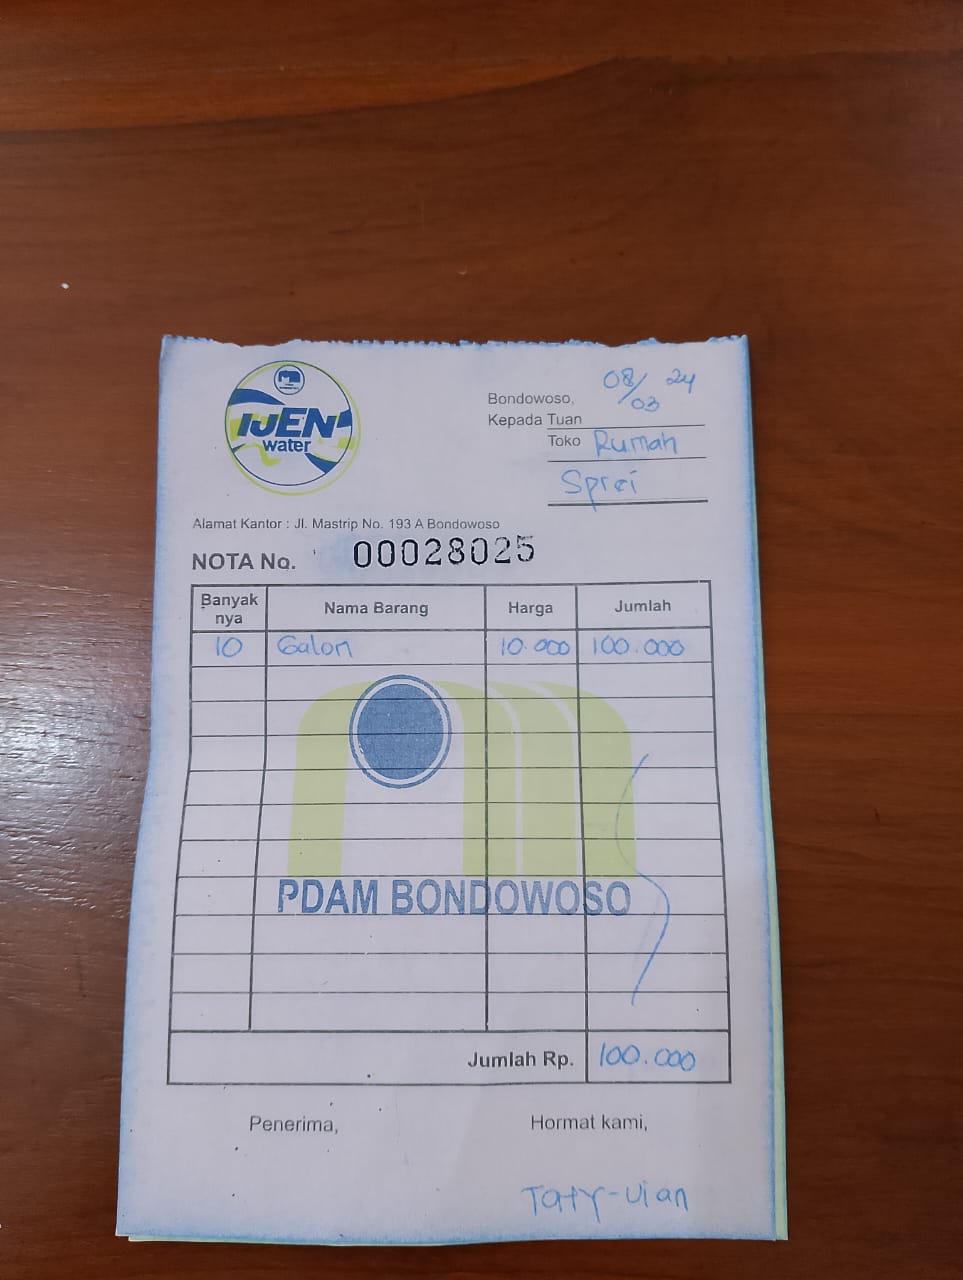 IJEN
water
Bondowoso, 08/03 24
Kepada Tuan
Toko Rumah
Sprei
Alamat Kantor : Jl. Mastrip No. 193 A Bondowoso
NOTA No. 00028025
Banyak nya Nama Barang Harga Jumlah
10 Galon 10.000 100.000
PDAM BONDOWOSO
Jumlah Rp. 100.000
Penerima, Hormat kami,
Taty-Vian